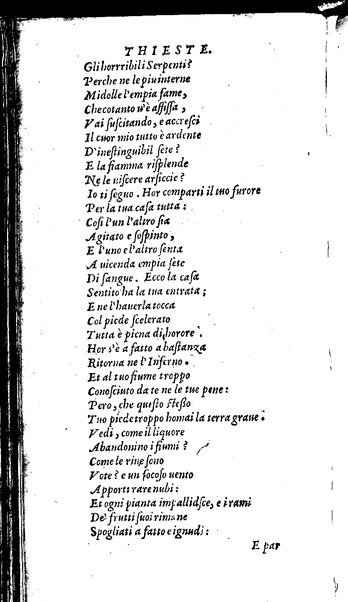 THIESTE.
Gli horrribili Serpenti?
Perche ne le piu interne
Midolle l'empia fame,
Che cotanto u'è affissa,
Vai suscitando, e accresci
Il cuor mio tutto è ardente
D'inestinguibil sete?
E la fiamma risplende
Ne le uiscere arsiccie?
Io ti seguo. Hor comparti il tuo furore
Per la tua casa tutta:
Cosi l'un l'altro sia
Agitato e sospinto,
E l'uno e l'altro senta
A uicenda empia sete
Di sangue. Ecco la casa
Sentito ha la tua entrata;
E ne l'hauerla tocca
Col piede scelerato
Tutta è piena di horore.
Hor s'è a fatto a bastanza
Ritorna ne l'Inferno.
Et al tuo fiume troppo
Conosciuto da te ne le tue pene:
Pero, che questo stesso
Tuo piede troppo homai la terra graue.
Vedi, come il liquore
Abandonino i fiumi?
Come le riue sono
Vote? e un focoso uento
Apporti rare nubi:
Et ogni pianta impallidisce, e i rami
De' frutti suoi rimane
Spogliati a fatto e ignudi:
E par